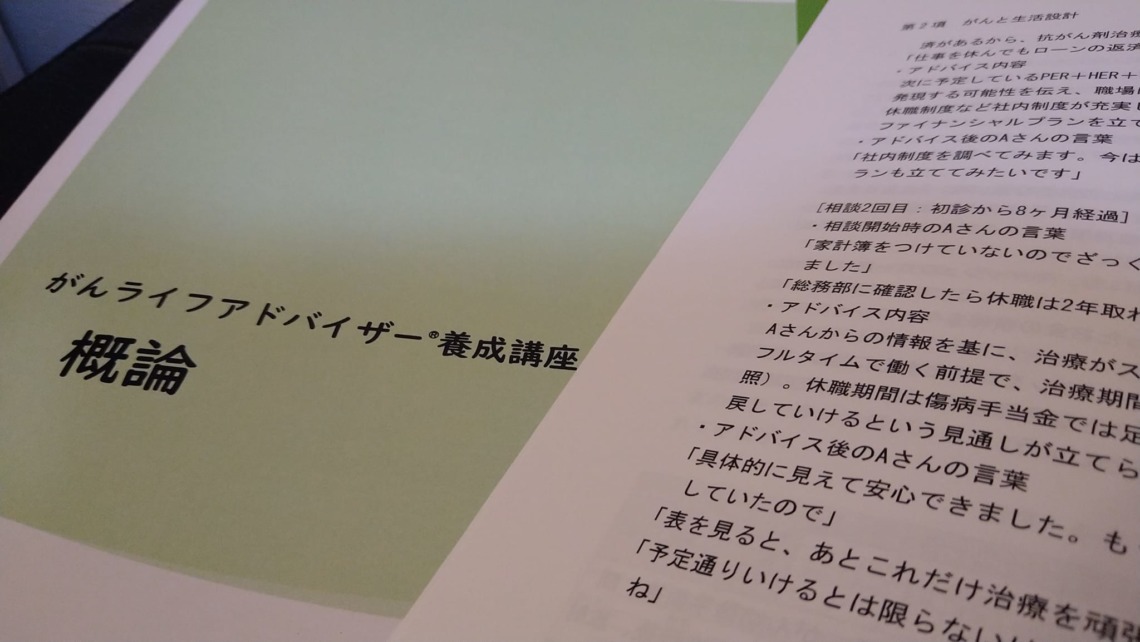 がんライフアドバイザー®養成講座
概論
第2項 がんと生活設計
済があるから、抗がん剤治療
「仕事を休んでもローンの返済
・アドバイス内容
次に予定しているPER＋HER＋
発現する可能性を伝え、職場
休職制度など社内制度が充実し
ファイナンシャルプランを立て
・アドバイス後のAさんの言葉
「社内制度を調べてみます。今は
ランも立ててみたいです」
[相談2回目：初診から8ヶ月経過]
・相談開始時のAさんの言葉
「家計簿をつけていないのでざっく
ました」
「総務部に確認したら休職は2年取れ
・アドバイス内容
Aさんからの情報を基に、治療がス
フルタイムで働く前提で、治療期間
照）。休職期間は傷病手当金では足
戻していけるという見通しが立てら
・アドバイス後のAさんの言葉
「具体的に見えて安心できました。も
していたので」
「表を見ると、あとこれだけ治療を頑張
「予定通りいけるとは限らない
ね」